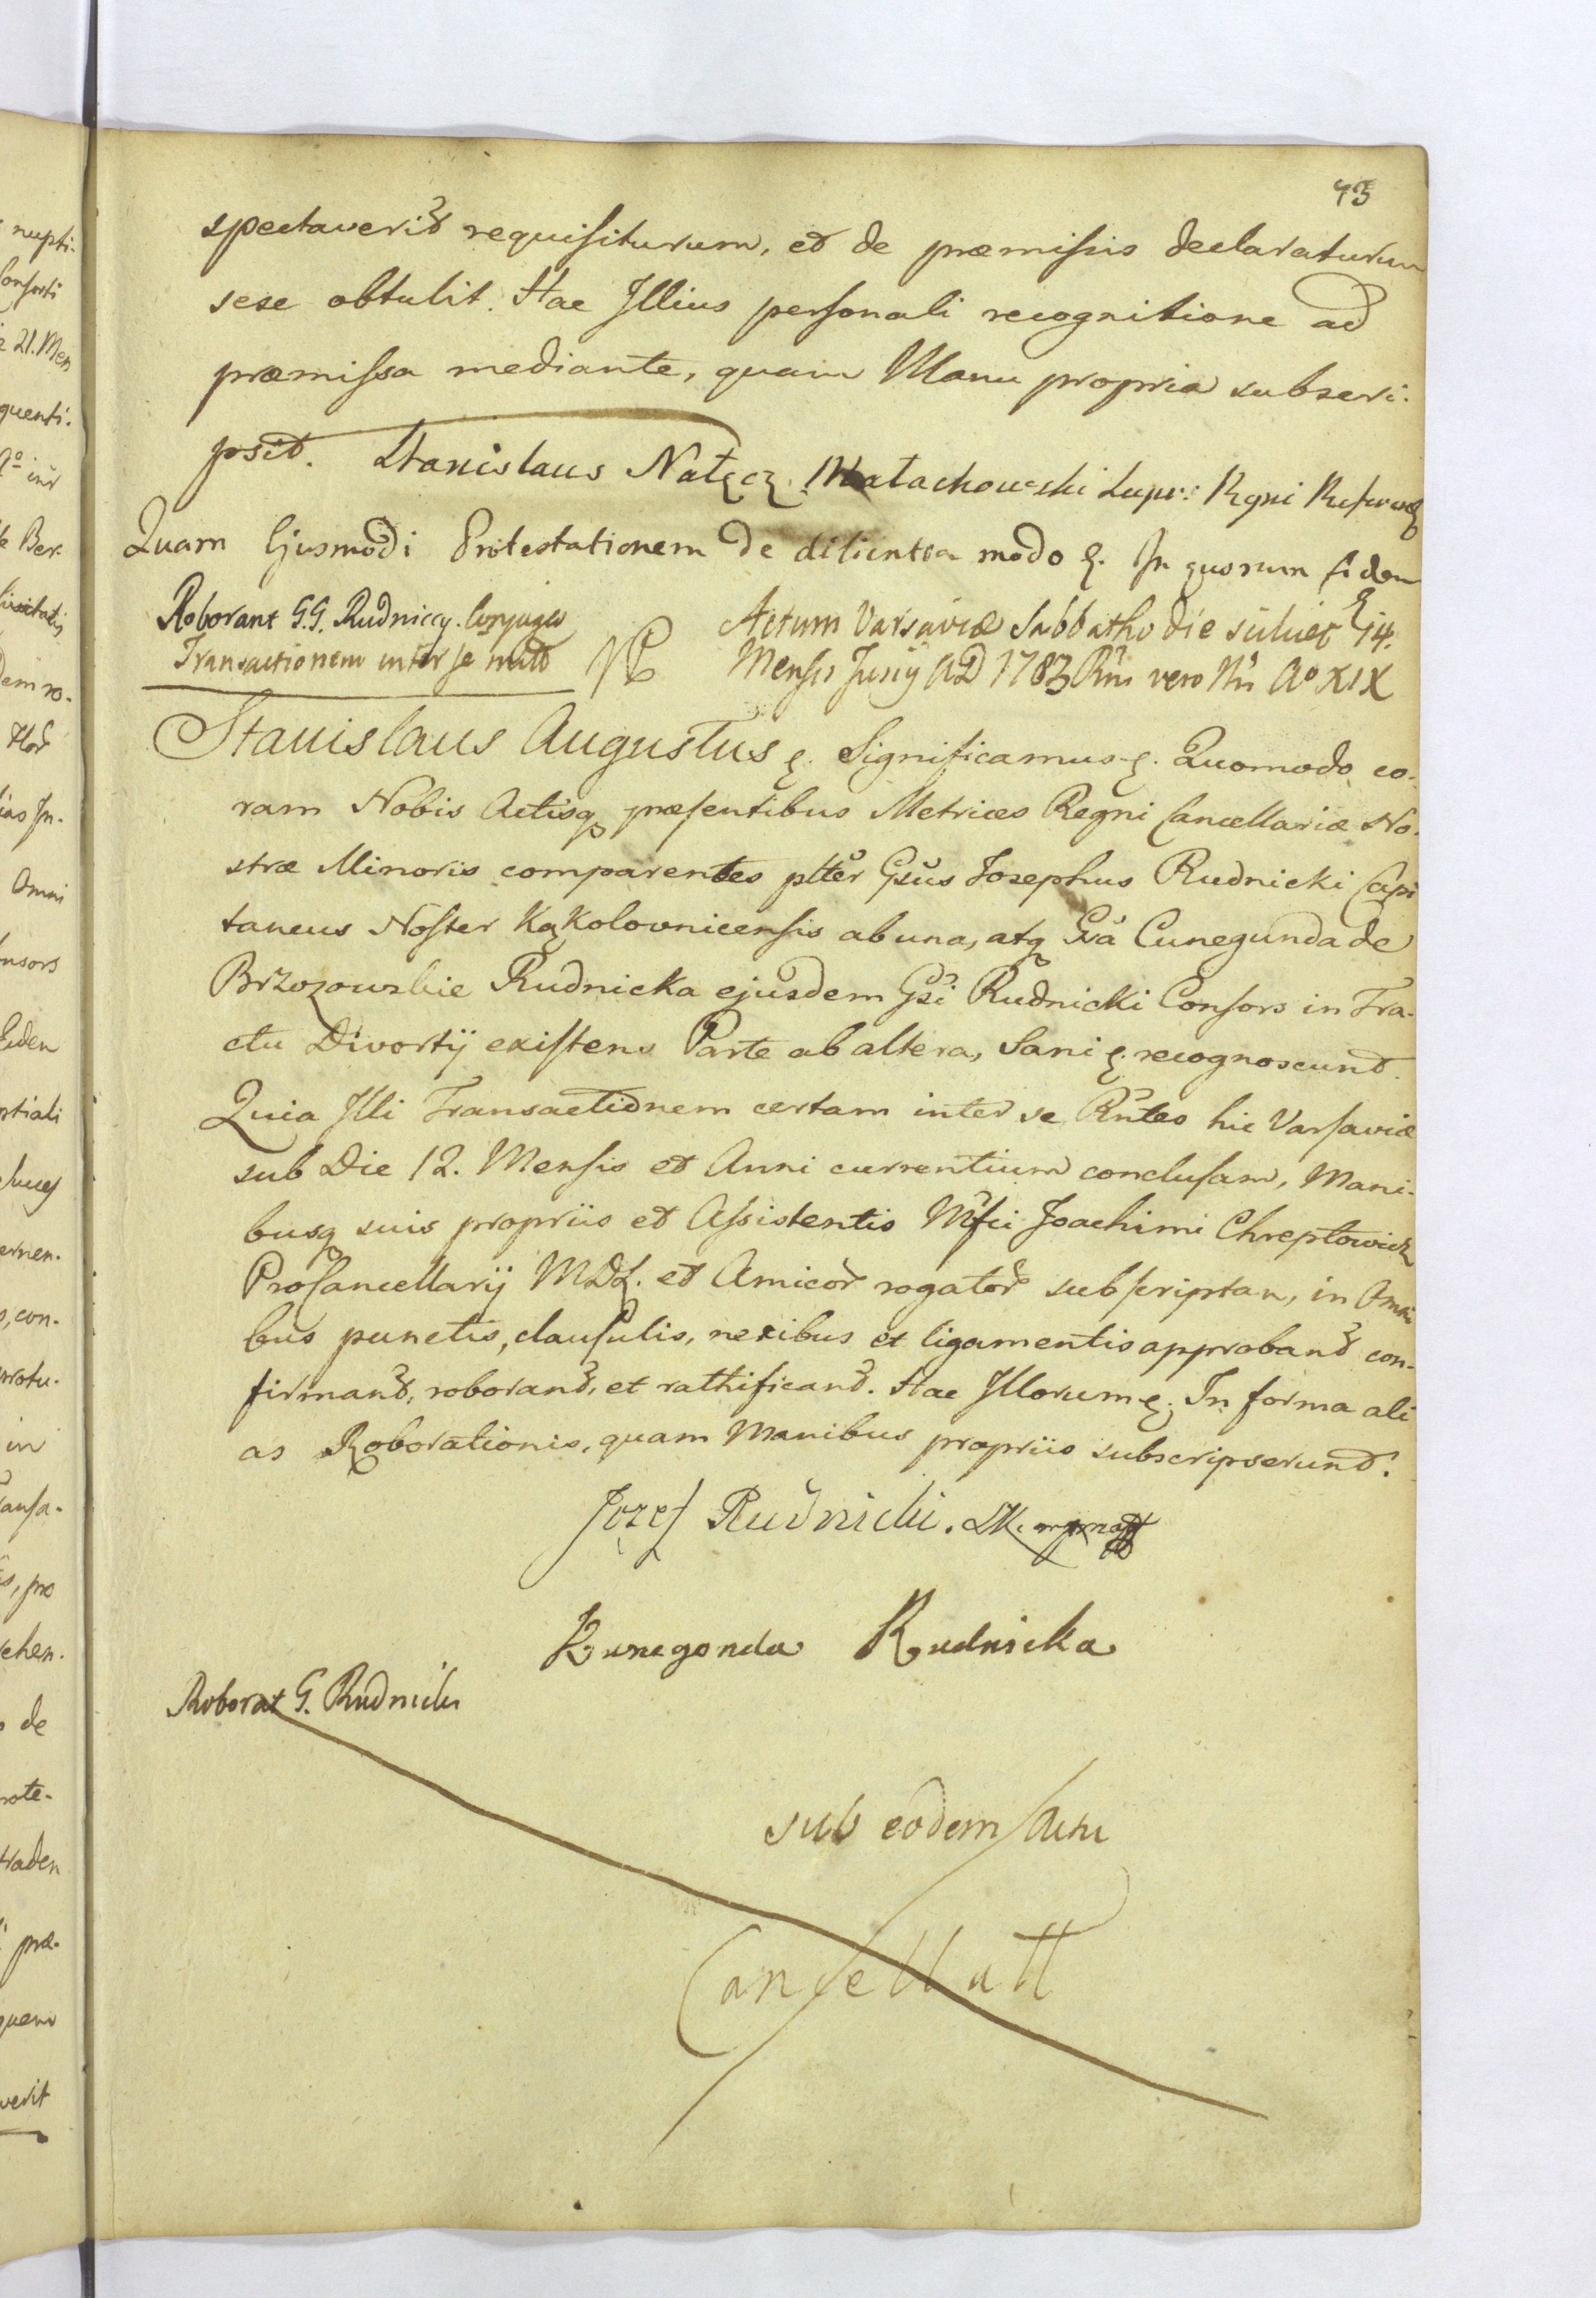 43
spectaverit requisiturum, et de præmissis declaraturum
sese obtulit. Hac Illius personali recognitione ad
præmissa mediante, quam Manu propria subscri:
psit. Stanislaus Nałęcz Małachowski Supr: Regni
Quam Ejusmodi Protestationem de modo &. In quorum fidem &
Roborant G.G. Rudniccy Conjuges
Transactionem inter se
Actum Varsaviæ Sabbatho die 14.
Mensis Junij AD 1783 Rni vero Nri Ao XIX
Stanislaus Augustus &. Significamus &. Quomodo co-
ram Nobis Actisq præsentibus Metrices Regni Cancellariæ No-
stræ Minoris comparentes plter Gsus Josephus Rudnicki Capi
taneus Noster Kąkolovnicensis ab una, atq Gsa Cunegunda de
Brzozowskie Rudnicka ejusdem Gsi Rudnicki Consors in Tra-
ctu Divortij existens Parte ab altera, Sani &. recognoscunt.
Quia Illi Transactionem certam inter se Rntes hic Varsaviæ
sub Die 12. Mensis et Anni currentium conclusam, Mani-
busq suis propriis et Assistentis Mfci Joachimi Chreptowicz
ProCancellarij MDL. et Amicor rogator subscriptam, in Omni
bus punctis, clausulis, nexibus et ligamentis approband con-
firmand, roborand, et rathificand. Hac Illorum &. In forma ali
as Roborationis, quam Manibus propriis subscripserunt.
Jozef Rudnicki. SK.
Kunegonda Rudnicka
Roborat G. Rudnicki
sub eodem Actu
Cancellatt
nupti-
Consorti
21. Men
quenti-
Omni
de
præ-
quem
verit